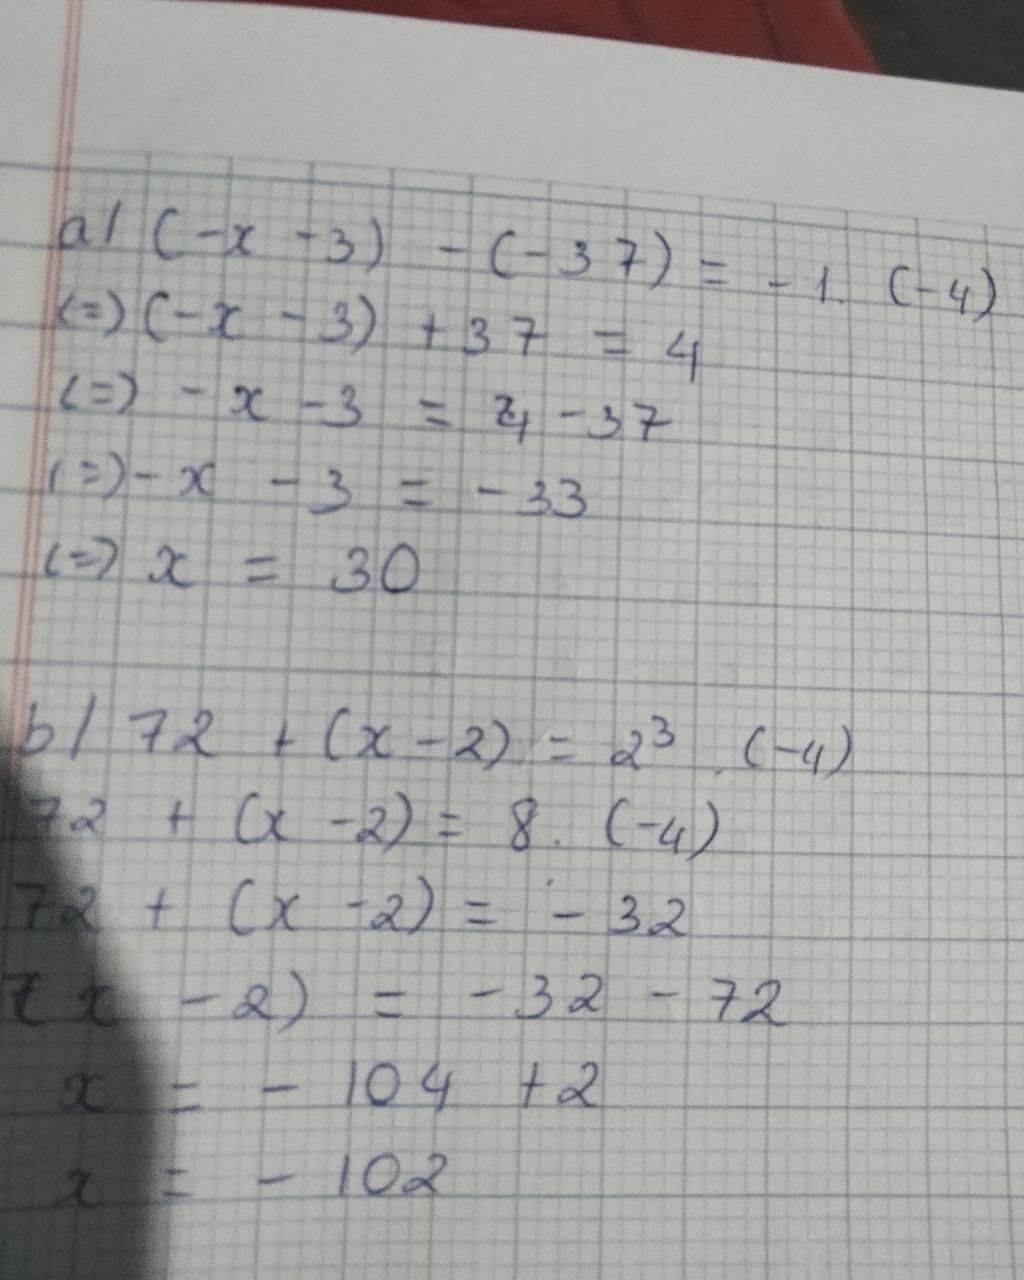 a/ (-x -3) - (-37) = -1. (-4)
(=) (-x -3) +37 = 4
(=) -x -3 = 4 -37
(=) -x -3 = -33
(=) x = 30
b/ 72 + (x-2) = 2³ . (-4)
72 + (x -2) = 8. (-4)
72 + (x -2) = -32
(x -2) = -32 -72
x = -104 +2
x = -102